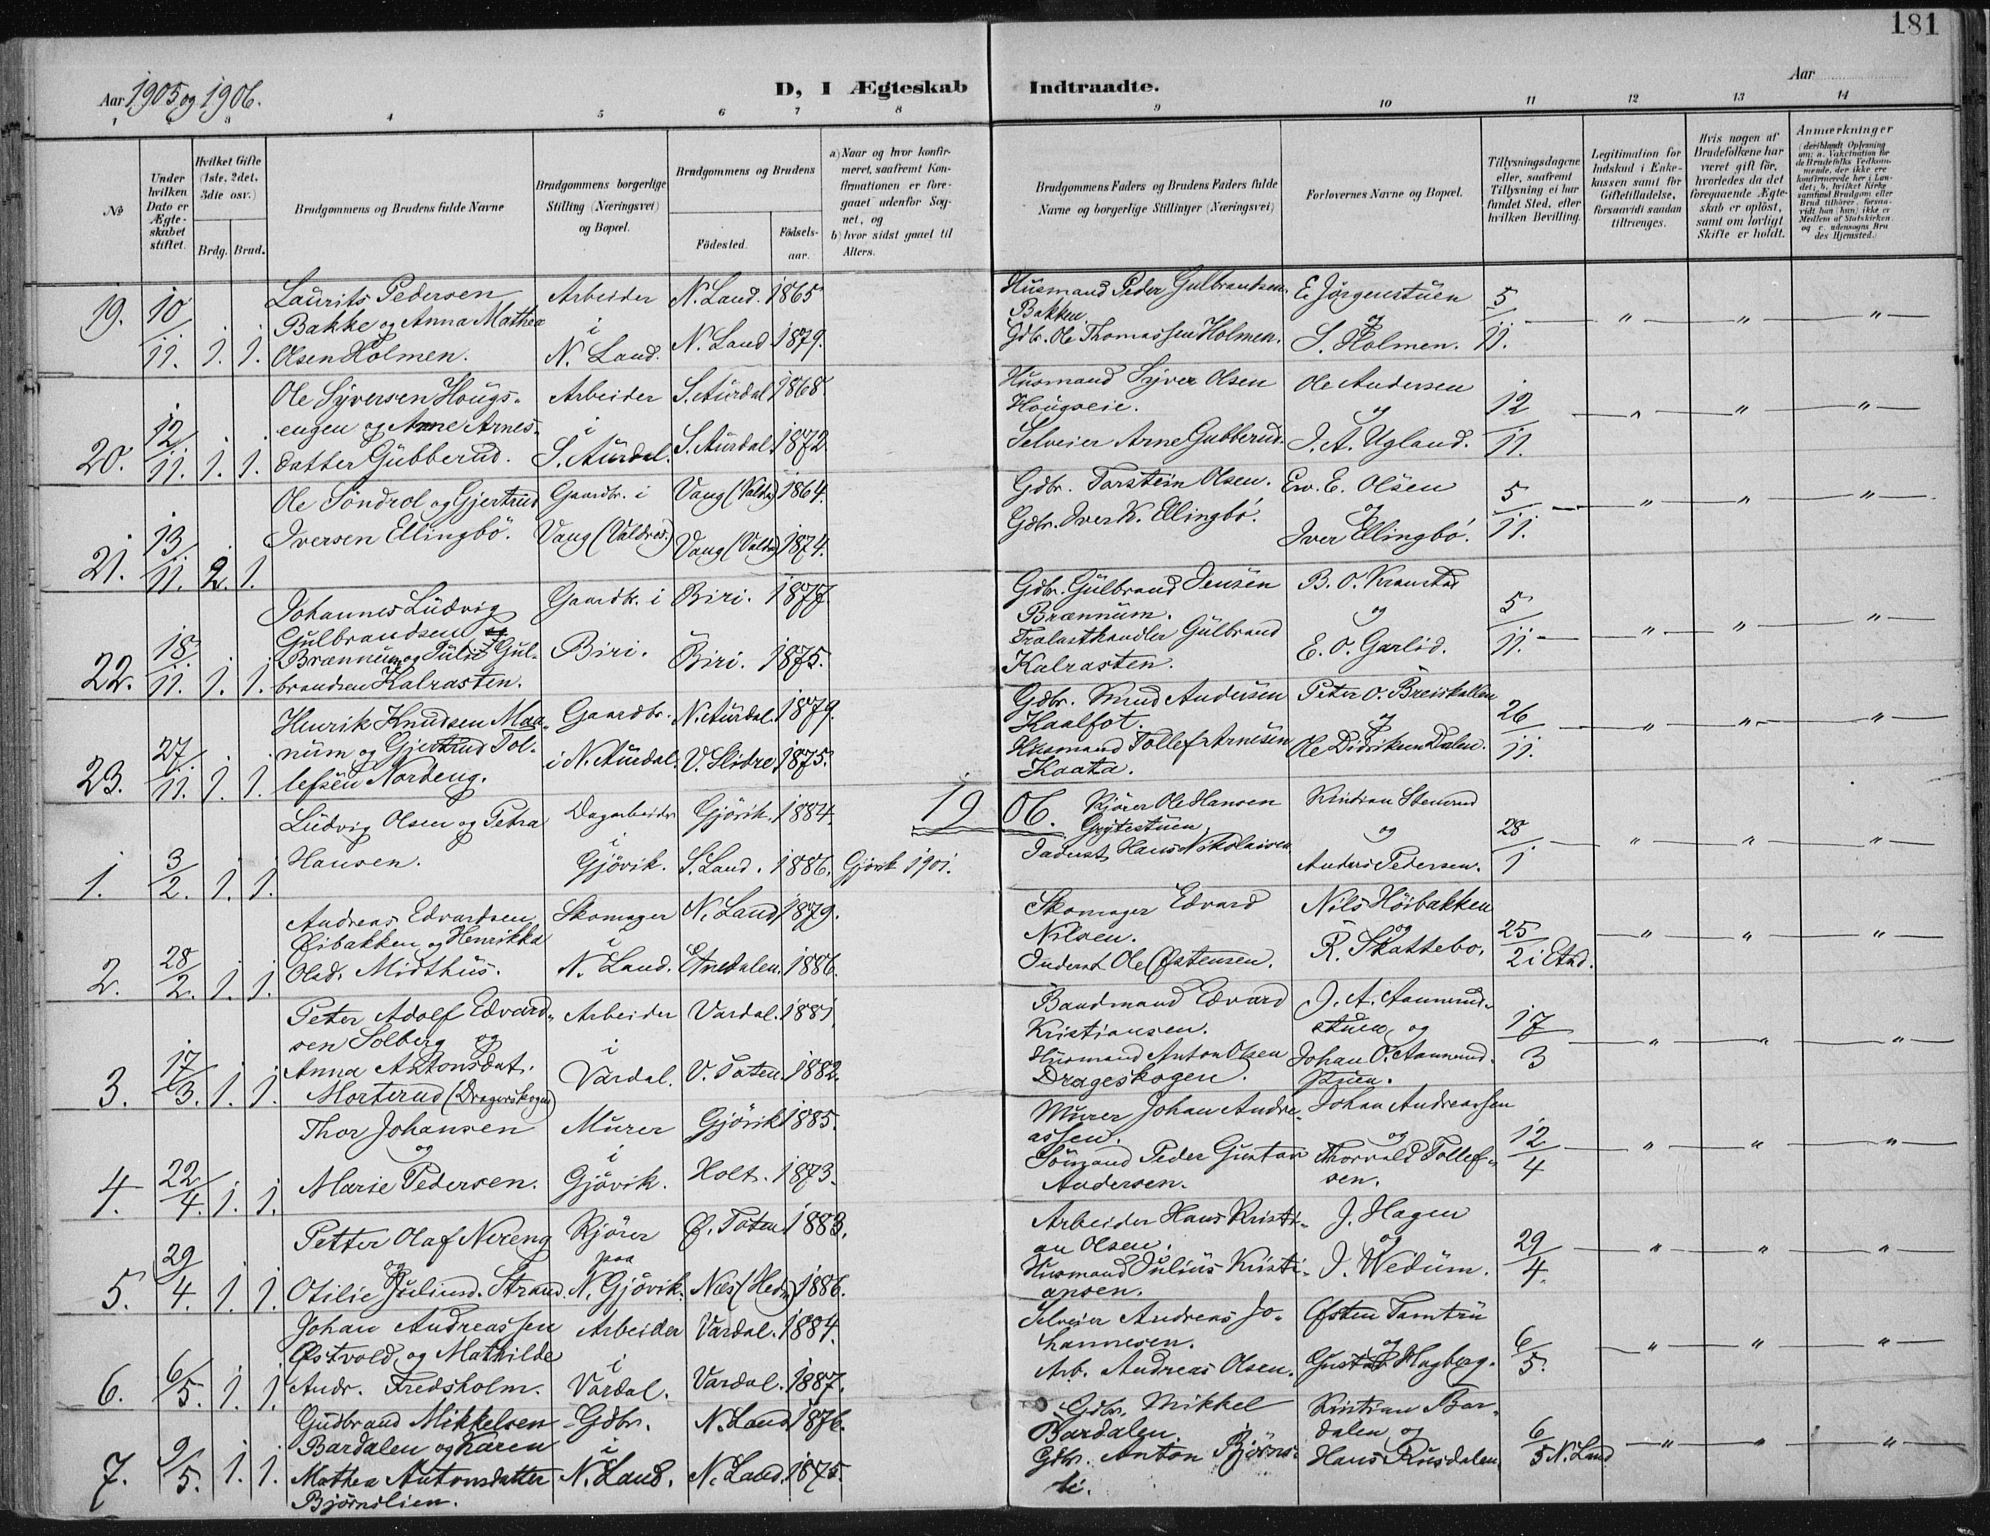 181
Aar 1905 og 1906.
D, I Ægteskab Indtraadte.
Aar
1 2 3 4 5 6 7 8 9 10 11 12 13 14
No
Under hvilken Dato er Ægteskabet stiftet.
Hvilket Gifte (1ste, 2det, 3die osv.)
Brdg. Brud.
Brudgommens og Brudens fulde Navne
Brudgommens borgerlige Stilling (Næringsvei) og Bopæl.
Brudgommens og Brudens
Födested.
Födselsaar.
a) Naar og hvor konfirmeret, saafremt Konfirmationen er foregaaet udenfor Sognet, og
b) hvor sidst gaaet til Alters.
Brudgommens Faders og Brudens Faders fulde Navne og borgerlige Stillinger (Næringsvei)
Forlovernes Navne og Bopæl.
Tillysningsdagene eller, saafremt Tillysning ei har fundet Sted, efter hvilken Bevilling.
Legitimation for Indskud i Enkekassen samt for Giftetilladelse, forsaavidt saadan tiltrænges.
Hvis nogen af Brudefolkene har været gift för, hvorledes da det foregaaende Ægteskab er oplöst, samt om lovligt Skifte er holdt.
Anmærkninger (deriblandt Oplysning om: a. Vaccination for de Brudefolks Vedkommende, der ikke ere konfirmerede her i Landet; b. hvilket Kirkesamfund Brudgom eller Brud tilhörer, forsaavidt han (hun) ikke er Medlem af Statskirken, og c. udensogns Brudes Hjemsted.)
19. 10/11. 1. 1. Laurits Pedersen Bakke og Anna Mathea Olsen Holmen.
Arbeider i N. Land.
N. Land. 1865
N. Land 1879.
Husmand Peder Gulbrandsen Bakken
Gdbr. Ole Thomassen Holmen.
E. Jörgenstuen og S. Holmen.
5/11. " " "
20. 12/11. 1. 1. Ole Syversen Hougsengen og Anne Arnesdatter Gubberud.
Arbeider i S. Aurdal.
S. Aurdal 1868
S. Aurdal 1872
Husmand Syver Olsen Hougseie.
Selveier Arne Gubberud.
Ole Andersen og J. A. Ugland.
12/11. " " "
21. 13/11. 2. 1. Ole Söndrol og Gjertrud Iversen Ellingbö.
Gaardbr. i Vang (Valdres.)
Vang (Valdr) 1864.
Vang (Valdr) 1874.
Gdbr. Torstein Olsen.
Gdbr. Iver K. Ellingbö.
E. Olsen og Iver Ellingbö.
5/11. " " "
22. 18/11. 1. 1. Johannes Ludvig Gulbrandsen Brænnum og Julie Gulbrandsen Kalrasten.
Gaardbr. i Biri.
Biri. 1877.
Biri. 1875.
Gdbr. Gulbrand Jensen Brænnum.
Trælasthandler Gulbrand Kalrasten.
B. O. Kramstad og E. O. Garlid.
5/11. " " "
23. 27/11. 1. 1. Henrik Knudsen Maanum og Gjertrud Tollefsen Nordeng.
Gaardbr. i N. Aurdal.
N. Aurdal. 1879.
V. Slidre 1875.
Gdbr. Knud Andersen Kaalfot.
Husmand Tollef Arnesen Kaata.
Peter O. Breiskallen og Ole Didriksen Dalen.
26/11. " " "
1906.
1. 3/2. 1. 1. Ludvig Olsen og Petra Hansen.
Dagarbeider i Gjövik.
Gjövik. 1884.
S. Land. 1886.
Gjövik 1901.
Kjörer Ole Hansen Grytestuen
Inderst Hans Nikolaisen
Kristian Stenrud og Anders Pedersen.
28/1 " " "
2. 28/2. 1. 1. Andreas Edvardsen Øibakken og Henrikka Olsd. Midthus.
Skomager i N. Land.
N. Land 1879.
Etnedalen. 1886.
Skomager Edvard Nilsen.
Inderst Ole Østensen.
Nils Höibakken og R. Skattebo.
25/2 i Etnd. " " "
3. 17/3. 1. 1. Peter Adolf Edvardsen Solberg og Anna Antonsdat. Morterud (Drageskogen)
Arbeider i Vardal.
Vardal. 1881.
V. Toten. 1882.
Baadmand Edvard Kristiansen.
Husmand Anton Olsen Drageskogen.
J. A. Aannerudstuen og Johan O. Aannerudstuen.
17/3 " " "
4. 22/4. 1. 1. Thor Johansen og Marie Pedersen.
Murer i Gjövik.
Gjövik 1885.
Holt. 1873.
Murer Johan Andreassen.
Sömand Peder Gustav Andersen.
Johan Andreassen og Thorvald Tollefsen.
12/4 " " "
5. 29/4. 1. 1. Petter Olaf Nereng og Otilie Juliusd. Strand.
Kjörer paa N. Gjövik.
Ø. Toten 1883.
Næs (Hedm) 1886.
Arbeider Hans Kristian Olsen.
Husmand Julius Kristiansen.
J. Hagen og J. Wedum.
29/4. " " "
6. 6/5. 1. 1. Johan Andreassen Østvold og Mathilde Andr. Fredsholm.
Arbeider i Vardal.
Vardal. 1884.
Vardal. 1887.
Selveier Andreas Johannesen.
Arb. Andreas Olsen.
Østen Tomtru og Gustav Hagberg.
6/5. " " "
7. 9/5. 1. 1. Gudbrand Mikkelsen Bardalen og Karen Mathea Antonsdatter Björnslien.
Gdbr. i N. Land.
N. Land 1876.
N. Land. 1875.
Gdbr. Mikkel Bardalen.
Gdbr. Anton Björnsli.
Kristian Bardalen og Hans Rusdalen
6/5 N. Land " " "